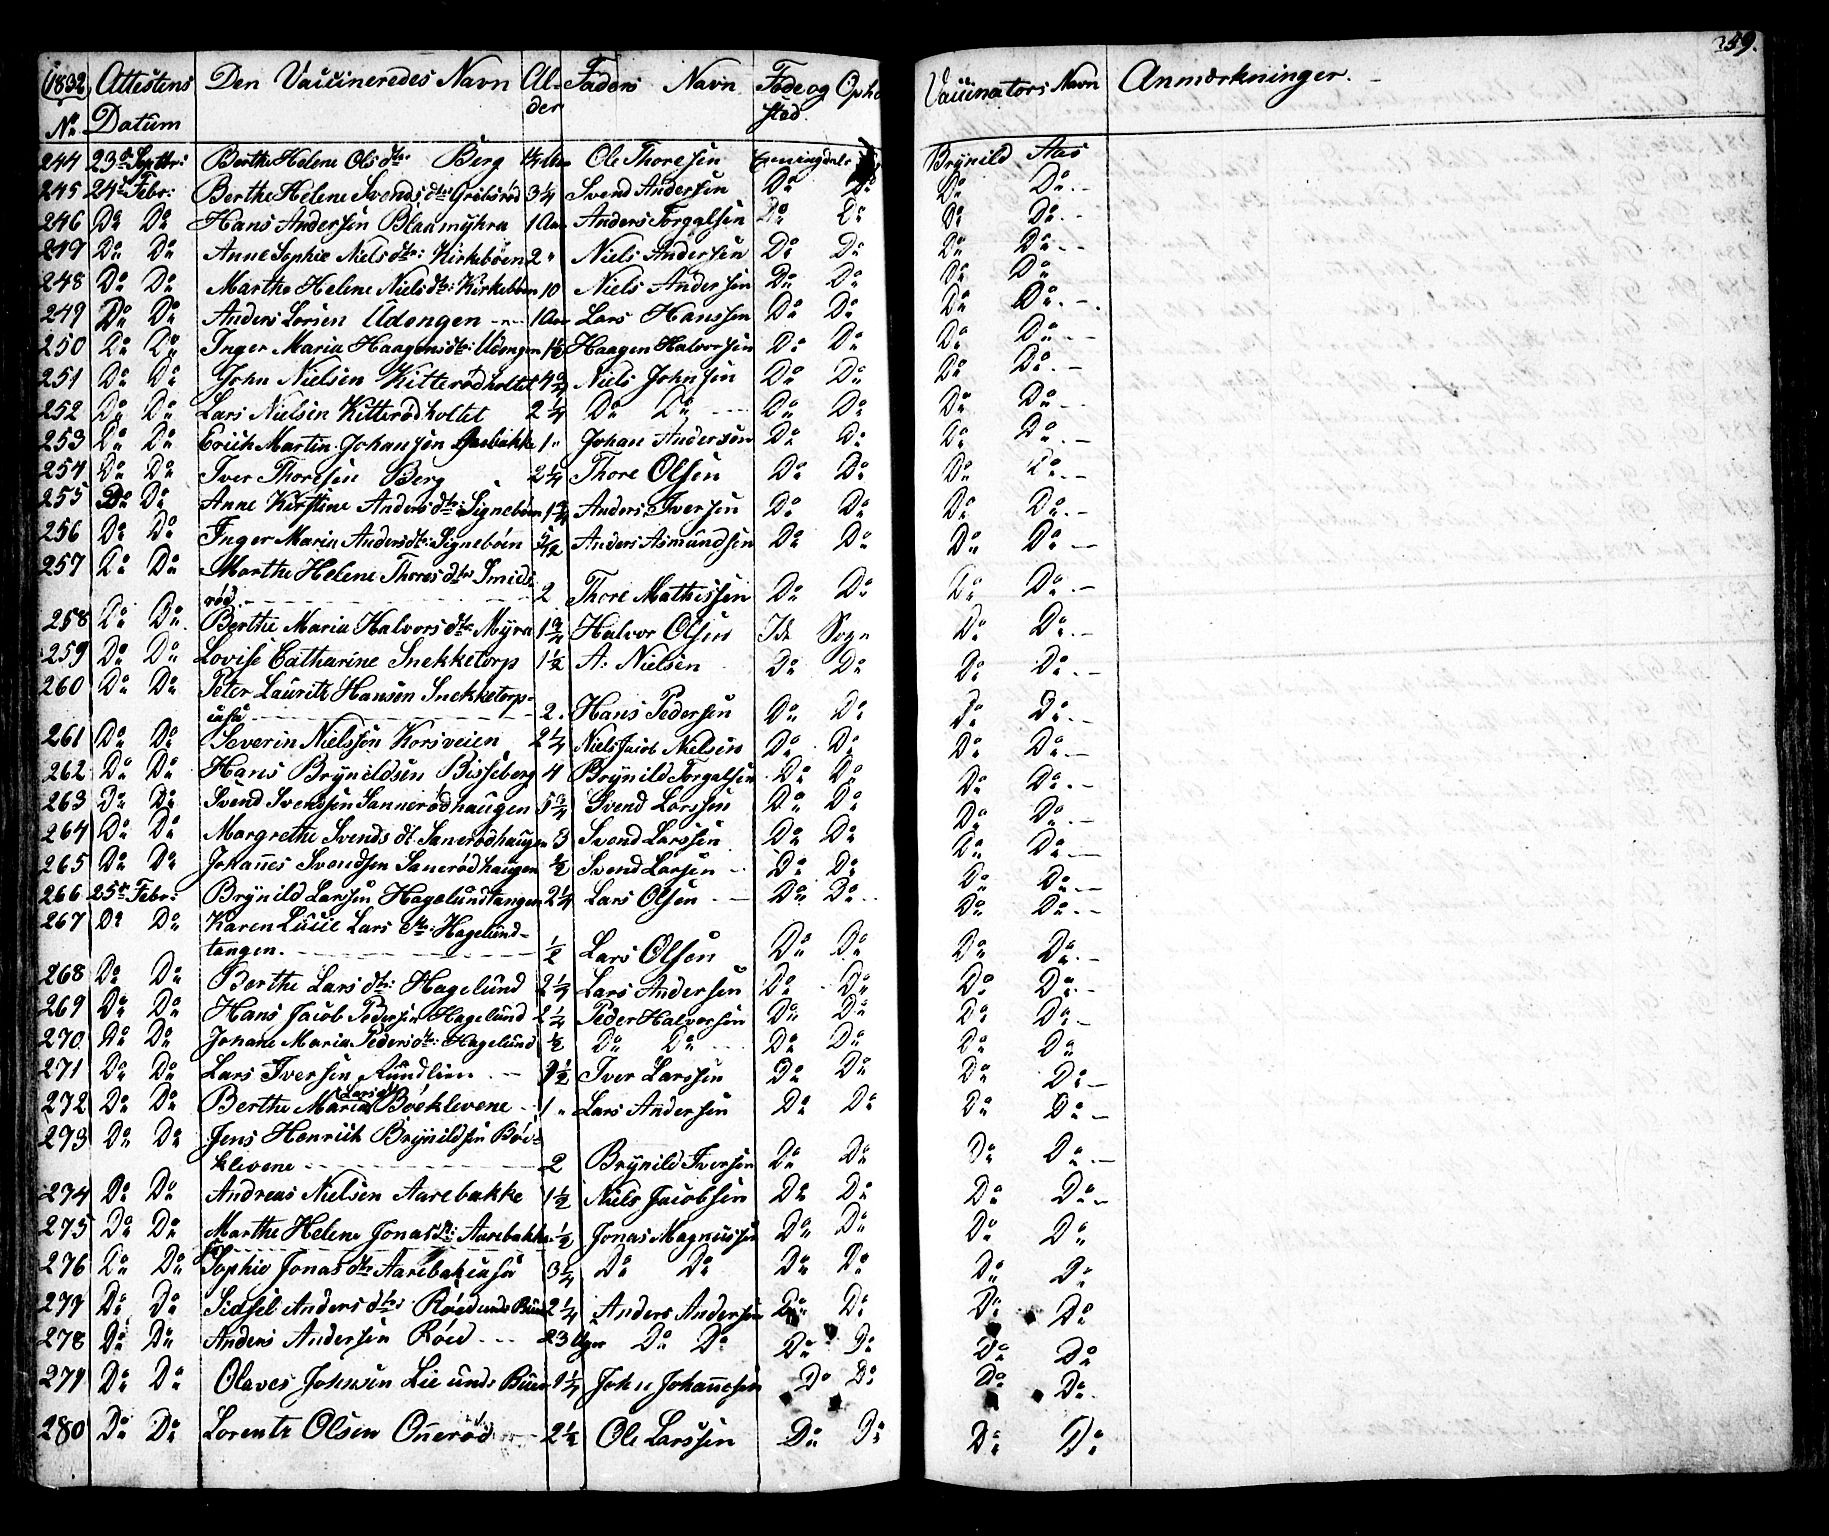 1832 Attestens Den Vaccineredes Navn Al- Faders Navn Føde og Opho Vaccinators Navn Anmærkninger. 259.
No Datum der sted
244 23de Septbr: Berthe Helene Olsdtr: Berg Ole Thoresen Enningdals Brynild Aas
245 24de Febr: Berthe Helene Svendsdtr: 3 1/4 Svend Andersen Do Do Do Do
246 Do Do Hans Andersen Blaamyhra 1 Aar Anders Torgalsen Do Do Do Do
247 Do Do Anne Sophie Nielsdtr: Kirkebøen 2 " Niels Andersen Do Do Do Do
248 Do Do Marthe Helene Nielsdtr: Kirkebøen 10 Niels Andersen Do Do Do Do
249 Do Do Anders Larsen Udengen 1 Aar Lars Hanssen Do Do Do Do
250 Do Do Inger Maria Haagensdtr: Udengen 1 1/2 Haagen Halvorsen Do Do Do Do
251 Do Do John Nielsen Kitterødholtet 4 3/4 Niels Johnsen Do Do Do Do
252 Do Do Lars Nielsen Kitterødholtet 2 1/4 Do Do Do Do Do Do
253 Do Do Erich Martin Johansen Aarebakke 1 " Johan Andersen Do Do Do Do
254 Do Do Iver Thoresen Berg 2 1/4 Thore Olsen Do Do Do Do
255 Do Do Anne Kirstine Andersdtr: Signebøen 1 3/4 Anders Iversen Do Do Do Do
256 Do Do Inger Maria Andersdtr: Signebøen Anders Asmundsen Do Do Do Do
257 Do Do Marthe Helene Thoresdtr Smids-
rød 2 Thore Mathissen Do Do Do Do
258 Do Do Berthe Maria Halvorsdtr Myra 1 3/4 Halvor Olsen Id Sogn Do Do
259 Do Do Lovise Catharine Snekketorp 1 1/2 A: Nielsen Do Do Do Do
260 Do Do Peter Lauritz Hansen Snekketorp-
iasa 2 Hans Pedersen Do Do Do Do
261 Do Do Severin Nielssen Korsveien 2 1/4 Niels Jacob Nielsen Do Do Do Do
262 Do Do Hans Brynildsen Bisseberg 4 Brynild Torgalsen Do Do Do Do
263 Do Do Svend Svendsen Sannerødhaugen 5 3/4 Svend Larssen Do Do Do Do
264 Do Do Margrethe Svendsdt Sanerødhaugen 3 Svend Larssen Do Do Do Do
265 Do Do Johannes Svendsen Sanerødhaugen 1/2 Svend Larsen Do Do Do Do
266 25de Febr: Brynild Larssen Hagelundtangen 2 1/4 Lars Olsen Do Do Do Do
267 Do Do Karen Lucie Larsdtr: Hagelund-
tangen 1/2 Lars Olsen Do Do Do Do
268 Do Do Berthe Larsdtr: Hagelund 2 1/4 Lars Andersen Do Do Do Do
269 Do Do Hans Jacob Pedersen Hagelund 2 1/4 Peder Halvorsen Do Do Do Do
270 Do Do Johane Maria Pedersdtr: Hagelund 1/2 Do Do Do Do Do Do
271 Do Do Lars Iversen Rundlien Iver Larssen Do Do Do Do
272 Do Do Berthe Maria Larsdtr Bøeklevene 1 " Lars Andersen Do Do Do Do
273 Do Do Jens Henrich Brynildsen Bøe-
klevene 2 Brynild Iversen Do Do Do Do
274 Do Do Andreas Nielsen Aarebakke 1 1/2 Niels Jacobsen Do Do Do Do
275 Do Do Marthe Helene Jonasdtr: Aarebakke 1/2 Jonas Magnussen Do Do Do Do
276 Do Do Sophie Jonasdtr Aarebakiasa 3 1/4 Do Do Do Do Do Do
277 Do Do Sidsel Andersdtr: Røed unde Buen 2 1/4 Anders Andersen Do Do Do Do
278 Do Do Anders Andersen Røed 23 Uger Do Do Do Do Do Do
279 Do Do Olaves Johnsen Lie unde Buen 1 1/4 John Johannesen Do Do Do Do
280 Do Do Lorentz Olsen Onerød 2 1/2 Ole Larssen Do Do Do Do